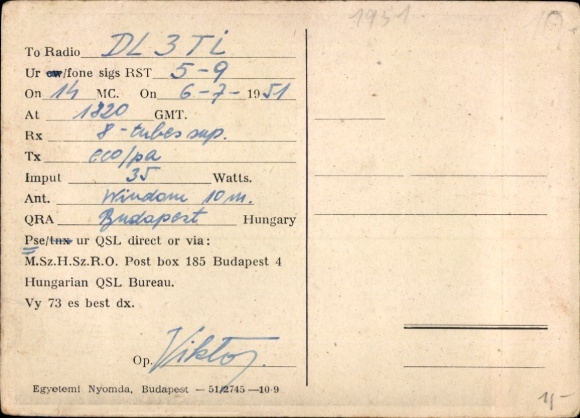 1951
To Radio DL 3 TI
Ur cw/fone sigs RST 5-9
On 14 MC. On 6-7- 1951
At 1820 GMT.
Rx 8-tubes sup.
Tx eco/pa
Imput 35 Watts.
Ant. Windom 10 m.
QRA Budapest Hungary
Pse/tnx ur QSL direct or via:
M.Sz.H.Sz.R.O. Post box 185 Budapest 4
Hungarian QSL Bureau.
Vy 73 es best dx.
Op. Viktor
Egyetemi Nyomda, Budapest — 51/2745 —10-9